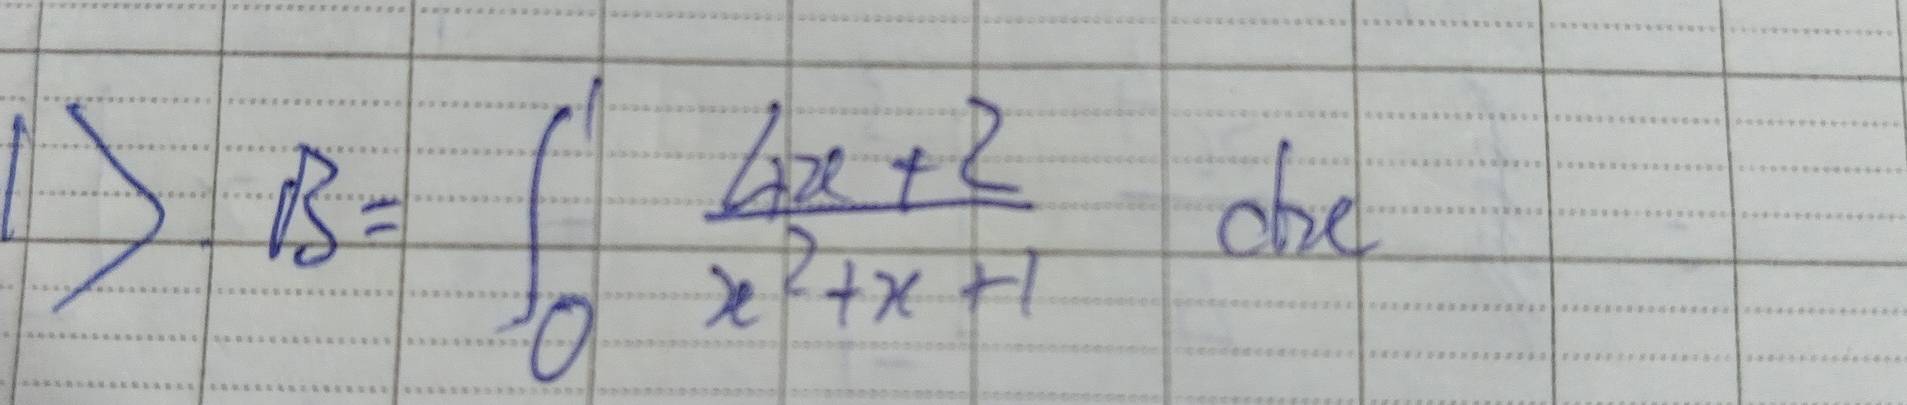 1> . B = ∫₀¹ (4x + 2)/(x² + x + 1) dx